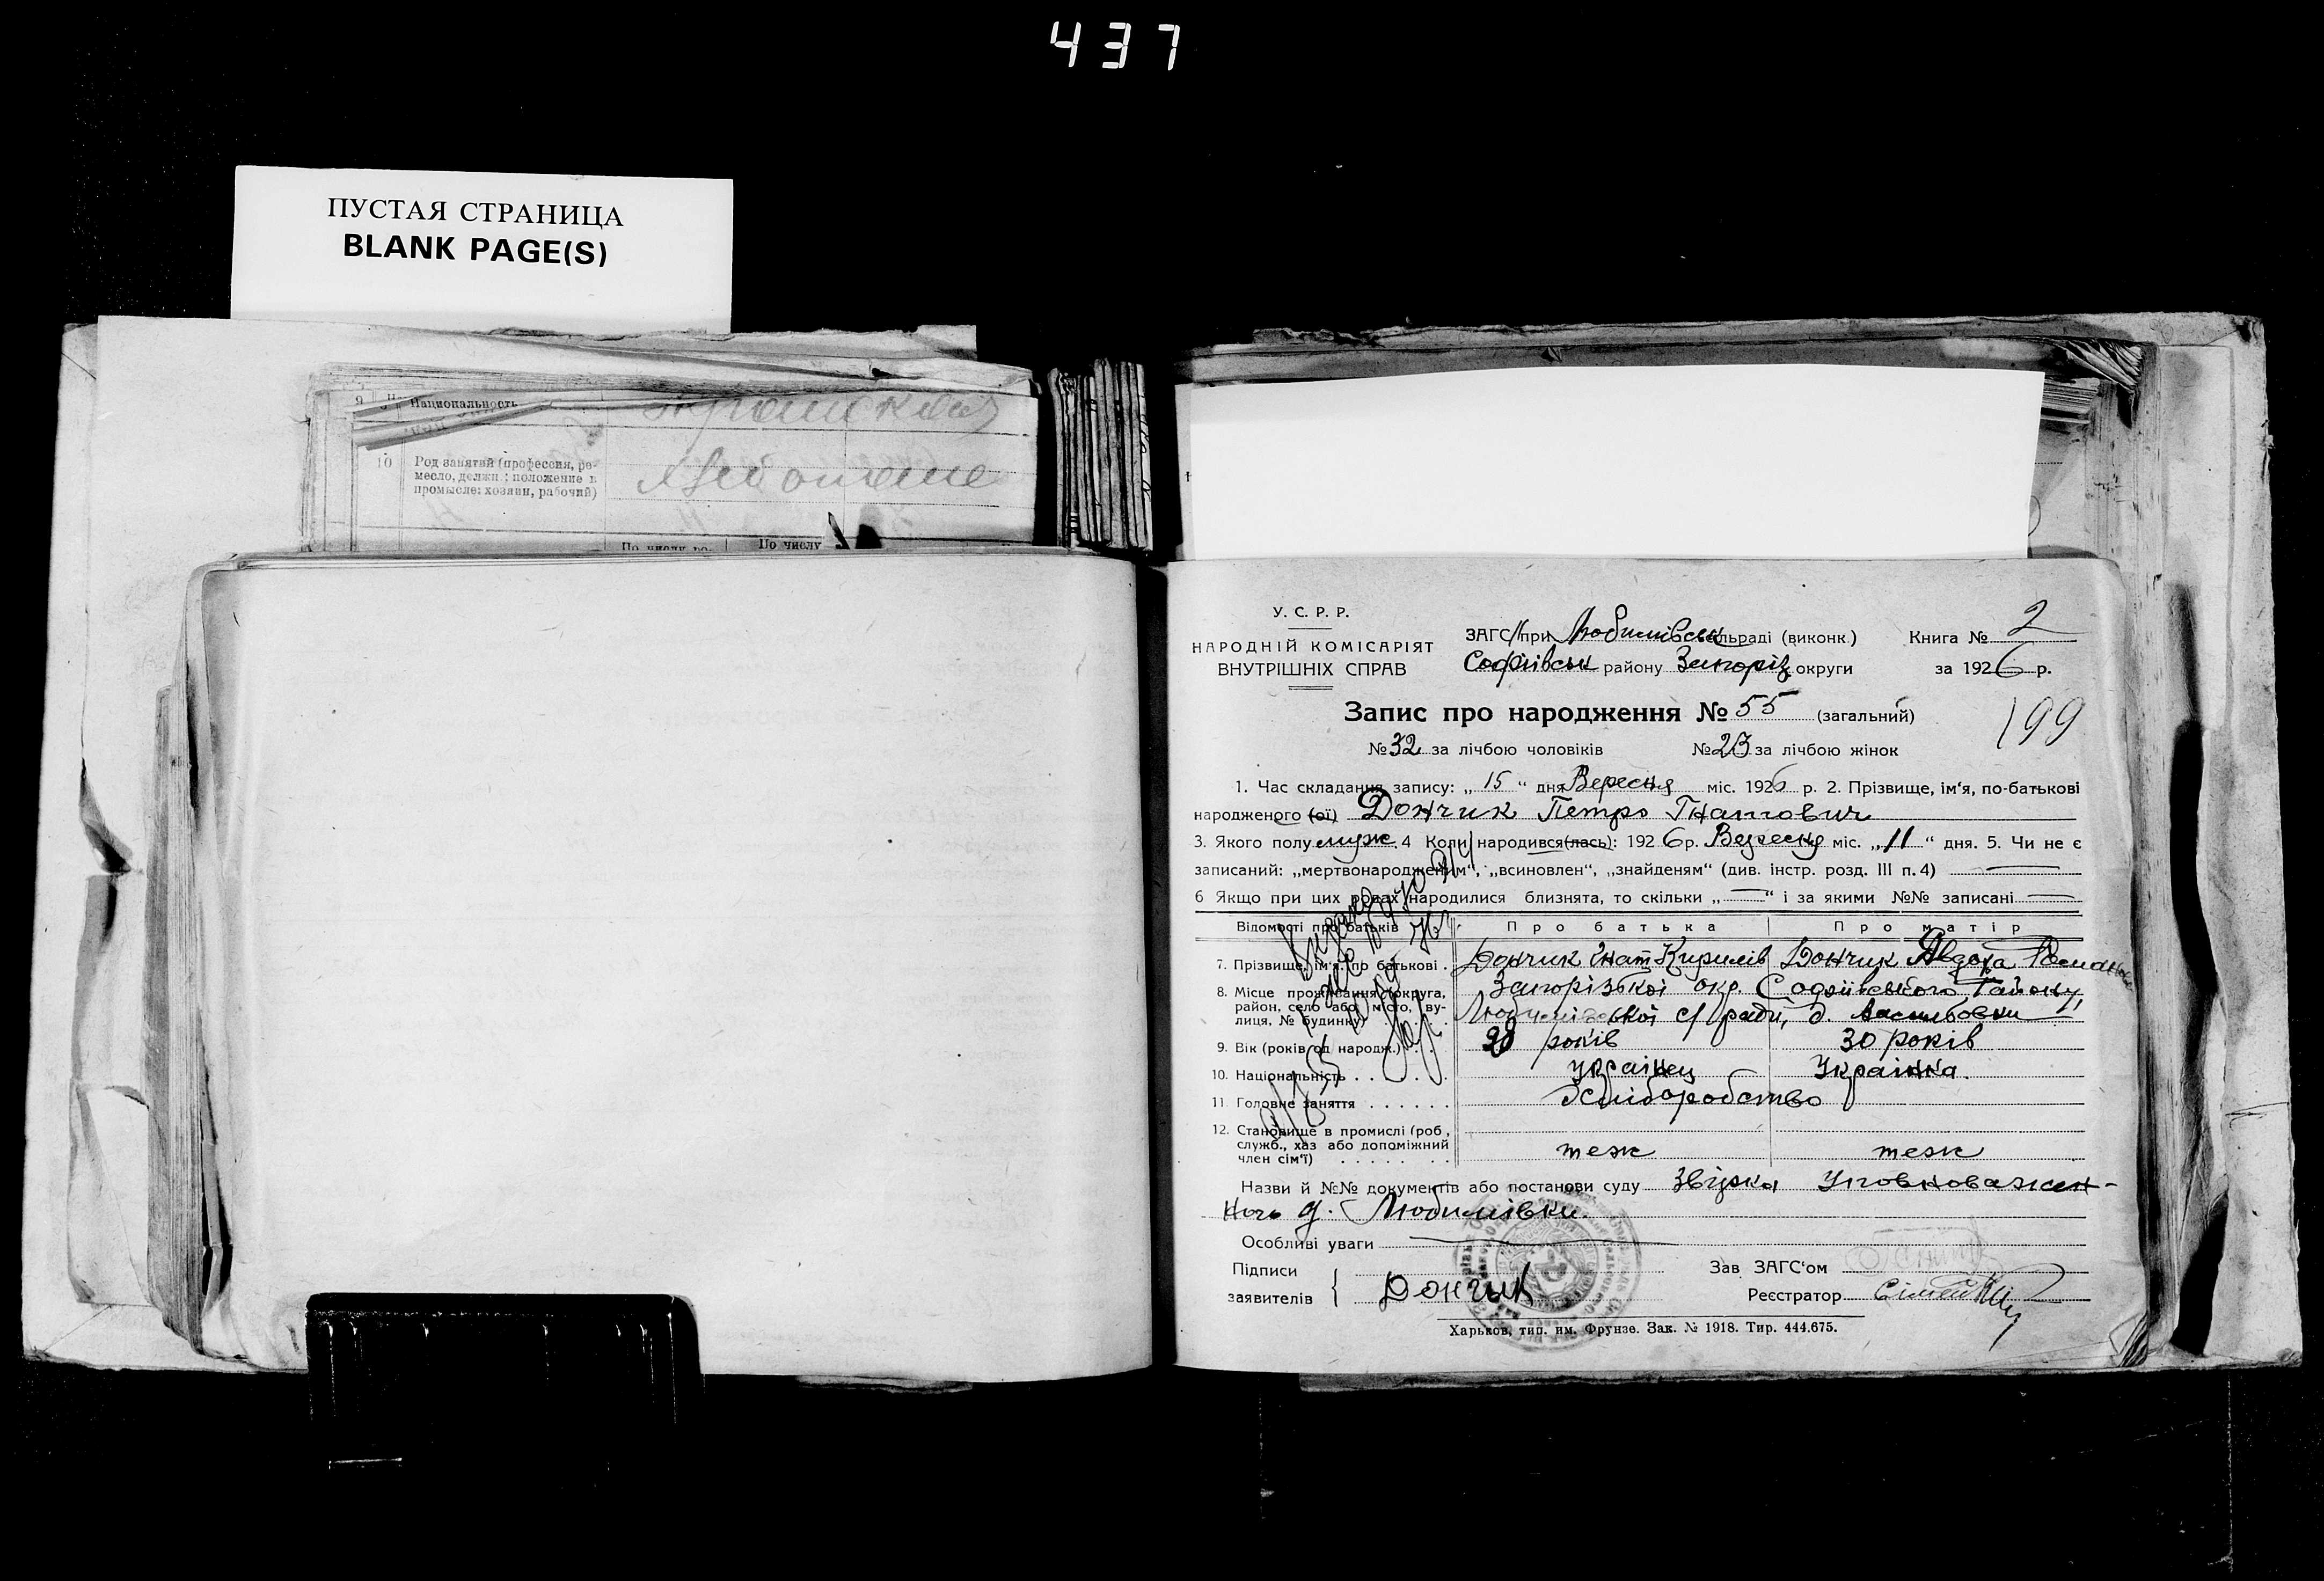 437
ПУСТАЯ СТРАНИЦА
BLANK PAGE(S)
9 Национальность
10 Род занятий (профессия, ре-
месло, должн.; положение в
промысле: хозяин, рабочий)
По числу
У. С. Р. Р.
НАРОДНІЙ КОМІСАРІЯТ
ВНУТРІШНІХ СПРАВ
ЗАГС при Любимівськ сельраді (виконк.)
Софіївськ району Запоріз округи
Книга № 2
за 1926 р.
Запис про народження № 55 (загальний)
199
№ 32 за лічбою чоловіків № 23 за лічбою жінок
1. Час складання запису: „ 15 “ дня Вересня міс. 1926 р. 2. Прізвище, ім‘я, по-батькові
народженого (ої) Дончик Петро Гнатович
3. Якого полу муж. 4 Коли народився(лась): 1926 р. Вересня міс. „ 11 “ дня. 5. Чи не є
записаний: „мертвонародженим“, „всиновлен“, „знайденям“ (див. інстр. розд. III п. 4)
6 Якщо при цих родах народилися близнята, то скільки „ “ і за якими №№ записані
Відомості про батьків Про батька Про матір
7. Прізвище, ім‘я, по батькові Дончик Гнат Кирилів Дончик Явдоха
8. Місце проживання (округа,
район, село або місто, ву-
лиця, № будинку)
Запорізької окр. Софіївського Району,
Любимівської с/ради, д. Васильовки
9. Вік (років од народж.) 28 років 30 років
10. Національність українец Українка.
11. Головне заняття Хліборобство
12. Становище в промислі (роб.,
служб., хаз або допоміжний
член сім‘ї) теж теж
Назви й №№ документів або постанови суду Звірка Уповноважен-
ного д. Любимівки.
Особливі уваги
Підписи
заявителів Дончик
Зав ЗАГС‘ом
Реєстратор
Харьков, тип. им. Фрунзе. Зак. № 1918. Тир. 444.675.